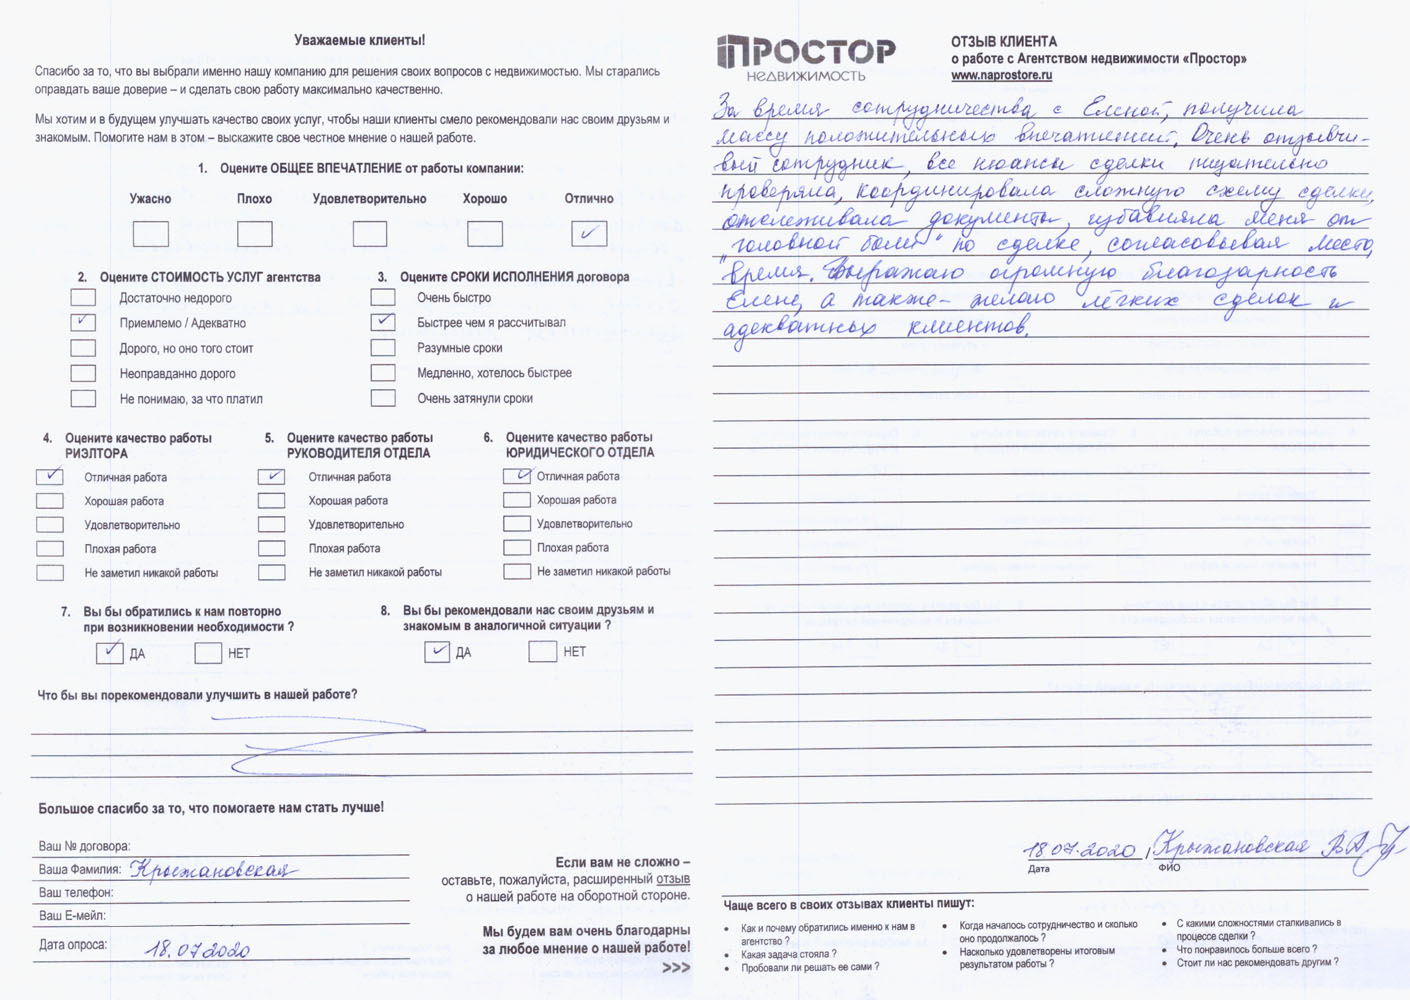 Уважаемые клиенты!
Спасибо за то, что вы выбрали именно нашу компанию для решения своих вопросов с недвижимостью. Мы старались
оправдать ваше доверие – и сделать свою работу максимально качественно.
Мы хотим и в будущем улучшать качество своих услуг, чтобы наши клиенты смело рекомендовали нас своим друзьям и
знакомым. Помогите нам в этом – выскажите свое честное мнение о нашей работе.
1. Оцените ОБЩЕЕ ВПЕЧАТЛЕНИЕ от работы компании:
Ужасно Плохо Удовлетворительно Хорошо Отлично
2. Оцените СТОИМОСТЬ УСЛУГ агентства
Достаточно недорого
Приемлемо / Адекватно
Дорого, но оно того стоит
Неоправданно дорого
Не понимаю, за что платил
3. Оцените СРОКИ ИСПОЛНЕНИЯ договора
Очень быстро
Быстрее чем я рассчитывал
Разумные сроки
Медленно, хотелось быстрее
Очень затянули сроки
4. Оцените качество работы
РИЭЛТОРА
Отличная работа
Хорошая работа
Удовлетворительно
Плохая работа
Не заметил никакой работы
5. Оцените качество работы
РУКОВОДИТЕЛЯ ОТДЕЛА
Отличная работа
Хорошая работа
Удовлетворительно
Плохая работа
Не заметил никакой работы
6. Оцените качество работы
ЮРИДИЧЕСКОГО ОТДЕЛА
Отличная работа
Хорошая работа
Удовлетворительно
Плохая работа
Не заметил никакой работы
7. Вы бы обратились к нам повторно
при возникновении необходимости ?
ДА НЕТ
8. Вы бы рекомендовали нас своим друзьям и
знакомым в аналогичной ситуации ?
ДА НЕТ
Что бы вы порекомендовали улучшить в нашей работе?
Большое спасибо за то, что помогаете нам стать лучше!
Ваш № договора:
Ваша Фамилия: Крыжановская
Ваш телефон:
Ваш Е-мейл:
Дата опроса: 18.07.2020
Если вам не сложно –
оставьте, пожалуйста, расширенный отзыв
о нашей работе на оборотной стороне.
Мы будем вам очень благодарны
за любое мнение о нашей работе!
>>>
ПРОСТОР
НЕДВИЖИМОСТЬ
ОТЗЫВ КЛИЕНТА
о работе с Агентством недвижимости «Простор»
www.naprostore.ru
За время сотрудничества с Еленой, получила
массу положительных впечатлений. Очень отзывчи-
вый сотрудник, все нюансы сделки тщательно
проверяла, координировала сложную схему сделки,
отслеживала документы, избавляла меня от
"головной боли" по сделке, согласовывая место,
время. Выражаю огромную благодарность
Елене, а также- желаю лёгких сделок и
адекватных клиентов.
18.07.2020 / Крыжановская В.А.
Дата ФИО
Чаще всего в своих отзывах клиенты пишут:
• Как и почему обратились именно к нам в
агентство ?
• Какая задача стояла ?
• Пробовали ли решать ее сами ?
• Когда началось сотрудничество и сколько
оно продолжалось ?
• Насколько удовлетворены итоговым
результатом работы ?
• С какими сложностями сталкивались в
процессе сделки ?
• Что понравилось больше всего ?
• Стоит ли нас рекомендовать другим ?